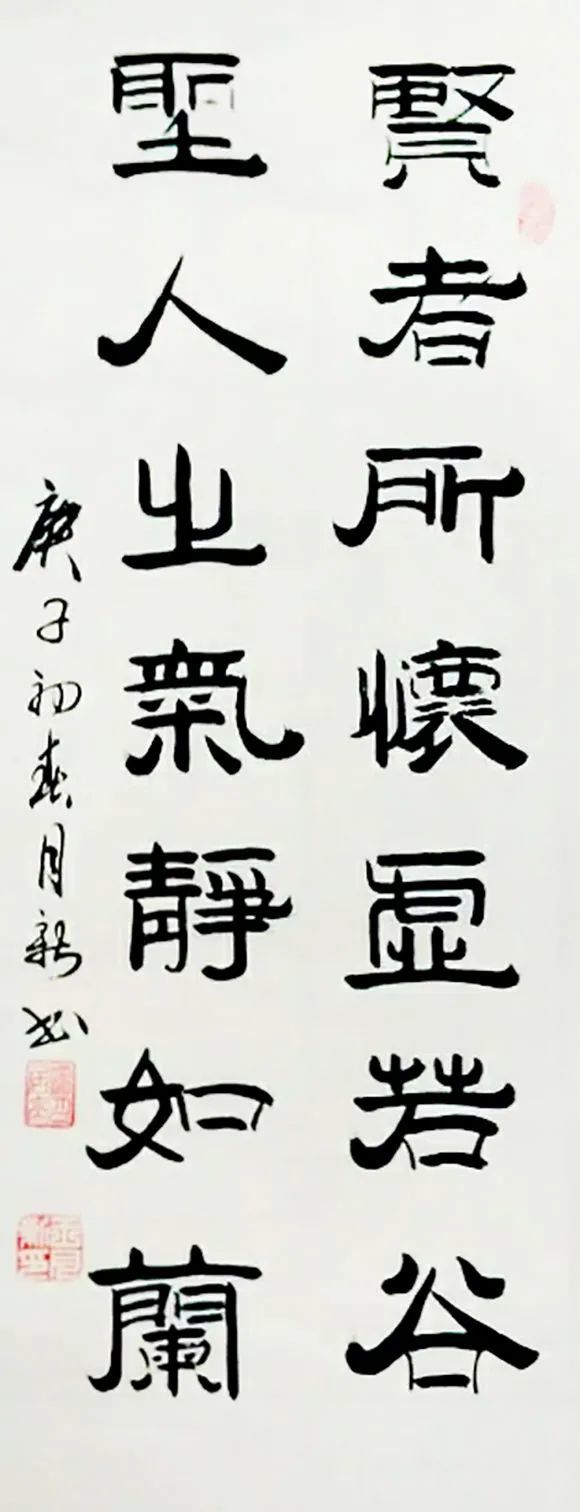 賢者所懷虛若谷
聖人之氣靜如蘭
庚子初春月新書